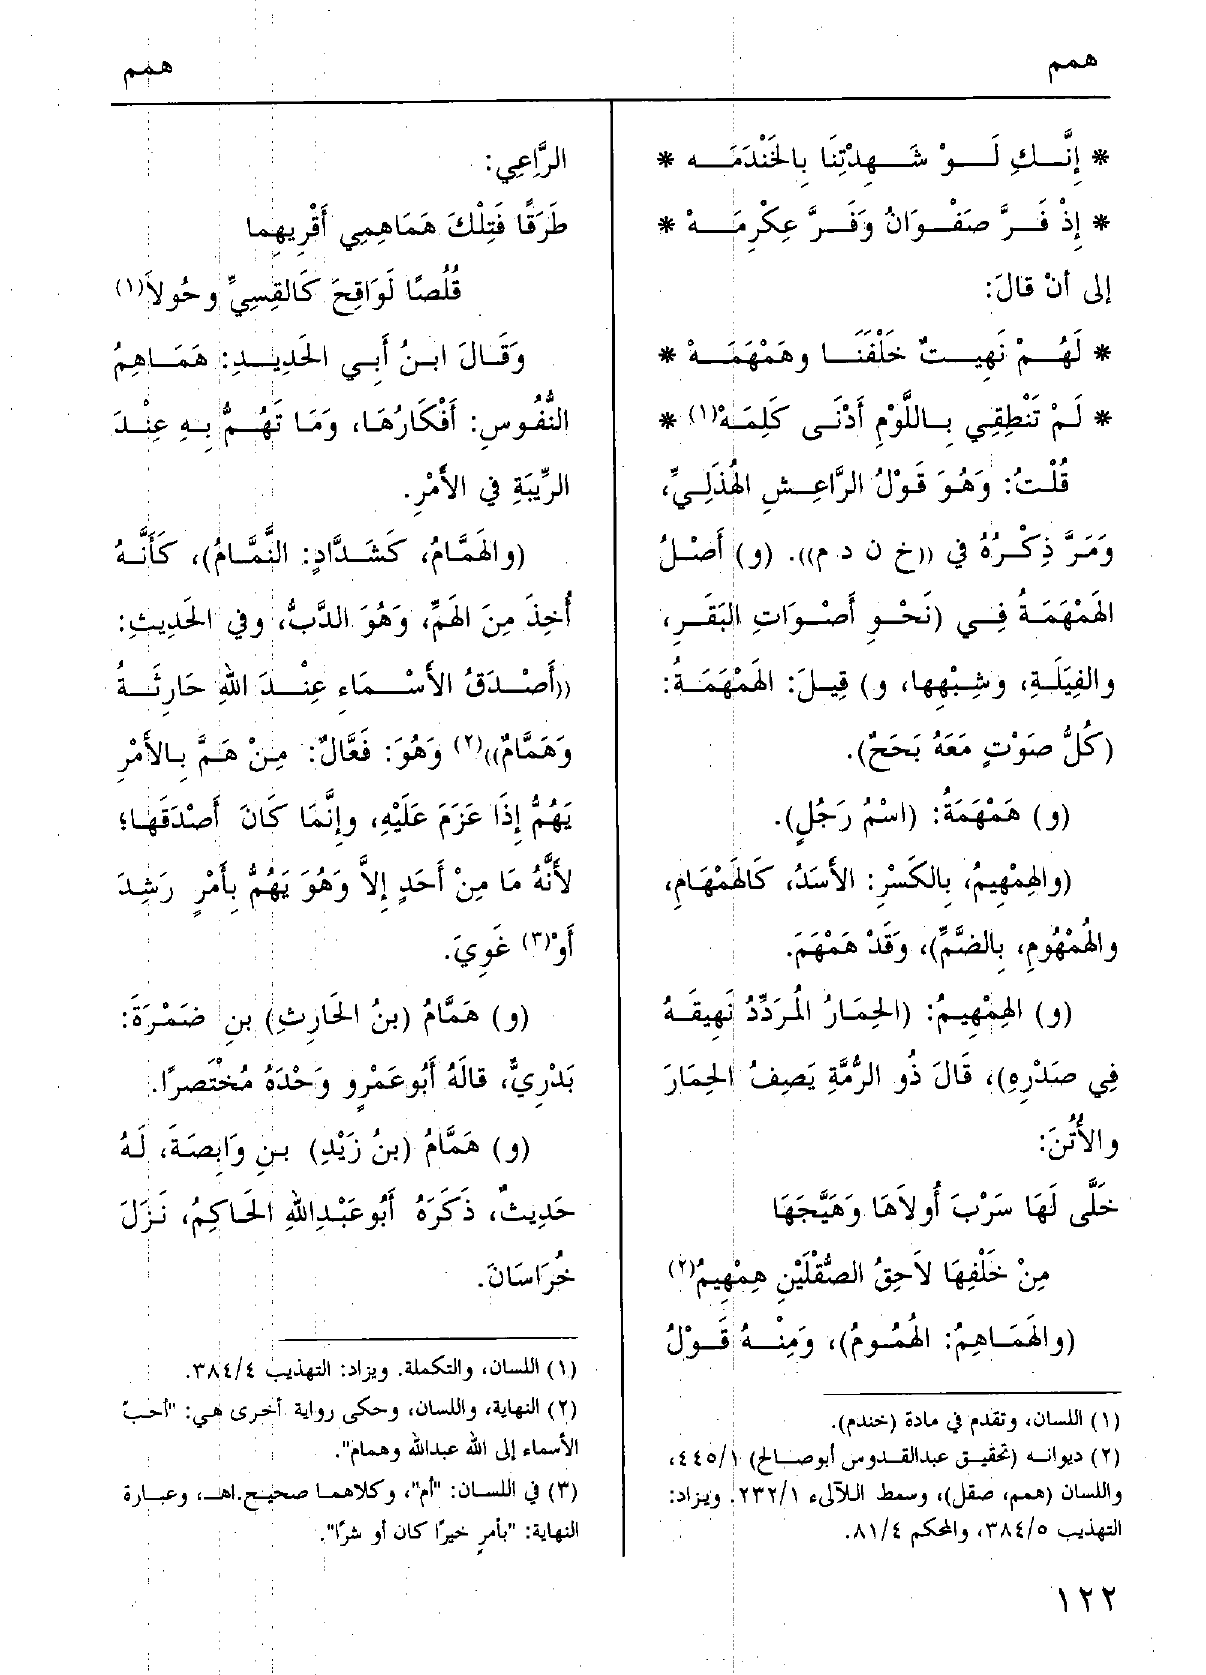 همم
همم
* إِنَّـــكِ لَـــوْ شَـــهِدْتِنَا بِالخَنْدَمَـــه *
* إِذْ فَـــرَّ صَفْـــوَانُ وَفَـــرَّ عِكْرِمَـــهْ *
إلى أنْ قالَ:
* لَهُـــمْ نَهِيـــتٌ خَلْفَنَـــا وهَمْهَمَـــهْ *
* لَـمْ تَنْطِقِـي بِـاللَّوْمِ أَدْنَـى كَلِمَـهْ(١) *
قُلْتُ: وَهُوَ قَوْلُ الرَّاعِشِ الهُذَلِيِّ،
وَمَرَّ ذِكْرُهُ في ((خ ن د م)). (و) أَصْلُ
الهَمْهَمَةُ فِي (نَحْوِ أَصْوَاتِ البَقَرِ،
والفِيَلَةِ، وشِبْهِها، و) قِيلَ: الهَمْهَمَةُ:
(كُلُّ صَوْتٍ مَعَهُ بَحَحٌ).
(و) هَمْهَمَةُ: (اسْمُ رَجُلٍ).
(والهِمْهِيمُ، بِالكَسْرِ: الأَسَدُ، كَالهَمْهَامِ،
والهُمْهُومِ، بِالضَّمِّ)، وَقَدْ هَمْهَمَ.
(و) الهِمْهِيمُ: (الحِمَارُ المُرَدِّدُ نَهِيقَهُ
فِي صَدْرِهِ)، قَالَ ذُو الرُّمَّةِ يَصِفُ الحِمَارَ
والأُتُنَ:
خَلَّى لَهَا سَرْبَ أُولاَهَا وَهَيَّجَهَا
مِنْ خَلْفِهَا لاَحِقُ الصُّقْلَيْنِ هِمْهِيمُ(٢)
(والهَمَاهِمُ: الهُمُومُ)، وَمِنْهُ قَوْلُ
(١) اللسان، وتقدم في مادة (خندم).
(٢) ديوانه (تحقيق عبدالقدوس أبوصالح) ٤٤٥/١،
واللسان (همم، صقل)، وسمط اللآلىء ٢٣٢/١. ويزاد:
التهذيب ٣٨٤/٥، والمحكم ٨١/٤.
الرَّاعِي:
طَرَقًا فَتِلْكَ هَمَاهِمِي أَقْرِيهِما
قُلُصًا لَوَاقِحَ كَالقِسِيِّ وحُولاَ(١)
وَقَالَ ابنُ أَبي الحَدِيدِ: هَمَاهِمُ
النُّفُوسِ: أَفْكَارُهَا، وَمَا تَهُمُّ بِهِ عِنْدَ
الرِّيبَةِ في الأَمْرِ.
(والهَمَّامُ، كَشَدَّادٍ: النَّمَّامُ)، كَأَنَّهُ
أُخِذَ مِنَ الهَمِّ، وَهُوَ الدَّبُّ، وفي الحَدِيثِ:
((أَصْدَقُ الأَسْمَاءِ عِنْدَ اللهِ حَارِثَةُ
وَهَمَّامٌ))(٢) وَهُوَ: فَعَّالٌ: مِنْ هَمَّ بِالأَمْرِ
يَهُمُّ إِذَا عَزَمَ عَلَيْهِ، وإِنَّمَا كَانَ أَصْدَقَهَا؛
لأَنَّهُ مَا مِنْ أَحَدٍ إِلاَّ وَهُوَ يَهُمُّ بِأَمْرٍ رَشِدَ
أَوْ(٣) غَوِيَ.
(و) هَمَّامُ (بنُ الحَارِثِ) بنِ ضَمْرَةَ:
بَدْرِيٌّ، قالَهُ أَبُوعَمْرٍو وَحْدَهُ مُخْتَصرًا.
(و) هَمَّامُ (بنُ زَيْدِ) بنِ وَابِصَةَ، لَهُ
حَدِيثٌ، ذَكَرَهُ أَبُوعَبْدِاللهِ الحَاكِمُ، نَزَلَ
خُرَاسَانَ.
(١) اللسان، والتكملة. ويزاد: التهذيب ٣٨٤/٤.
(٢) النهاية، واللسان، وحكى رواية أخرى هي: "أحبّ
الأسماء إلى الله عبدالله وهمام".
(٣) في اللسان: "أم"، وكلاهما صحيح.اهـ، وعبارة
النهاية: "بأمرٍ خيرًا كان أو شرًا".
١٢٢